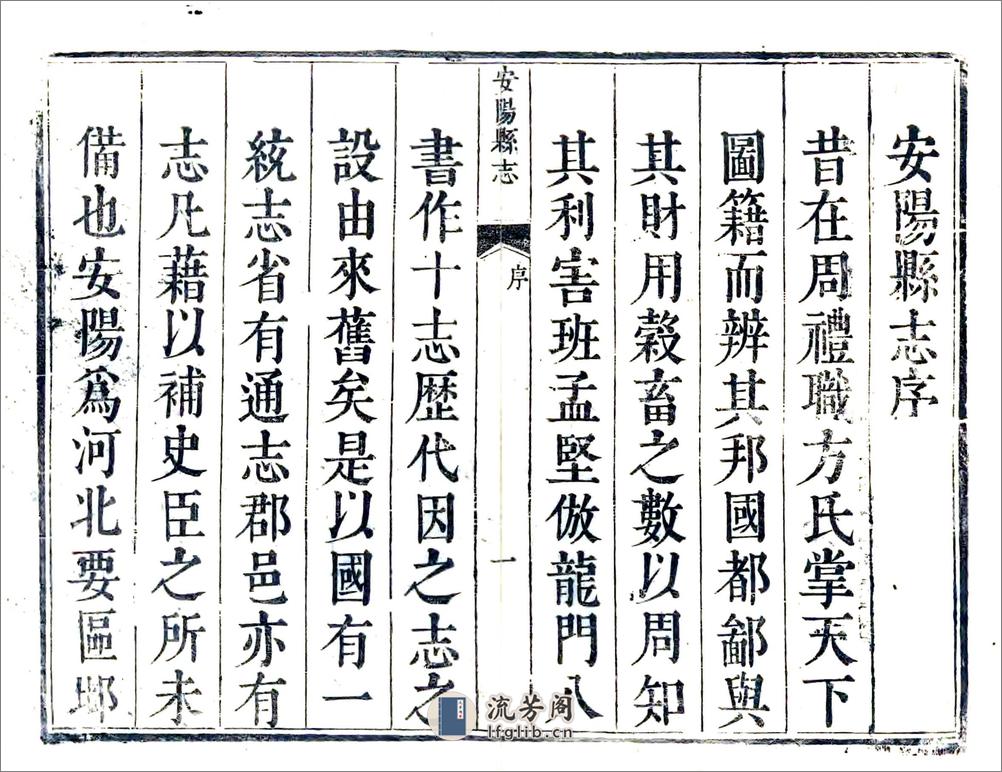 安陽縣志序
昔在周禮職方氏掌天下
圖籍而辨其邦國都鄙與
其財用穀畜之數以周知
其利害班孟堅倣龍門八
安陽縣志
序
一
書作十志歷代因之志之
設由來舊矣是以國有一
統志省有通志郡邑亦有
志凡藉以補史臣之所未
備也安陽爲河北要區鄴
流芳阁
lfglib.cn